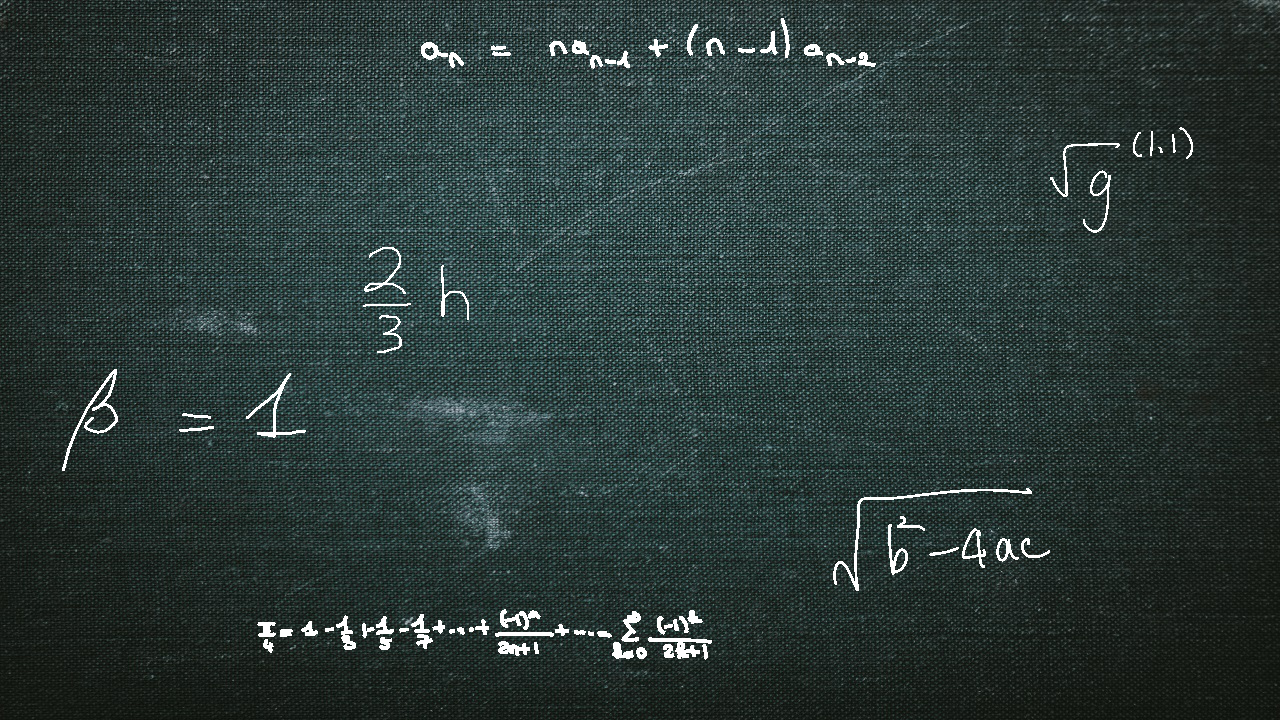 aₙ = naₙ₋₁ + (n-1) aₙ₋₂
√g^(1,1)
2/3 h
β = 1
√(b²-4ac)
π/4 = 1 - 1/3 + 1/5 - 1/7 + ... + (-1)ⁿ/(2n+1) + ... = ∑_{k=0}^∞ (-1)^k/(2k+1)